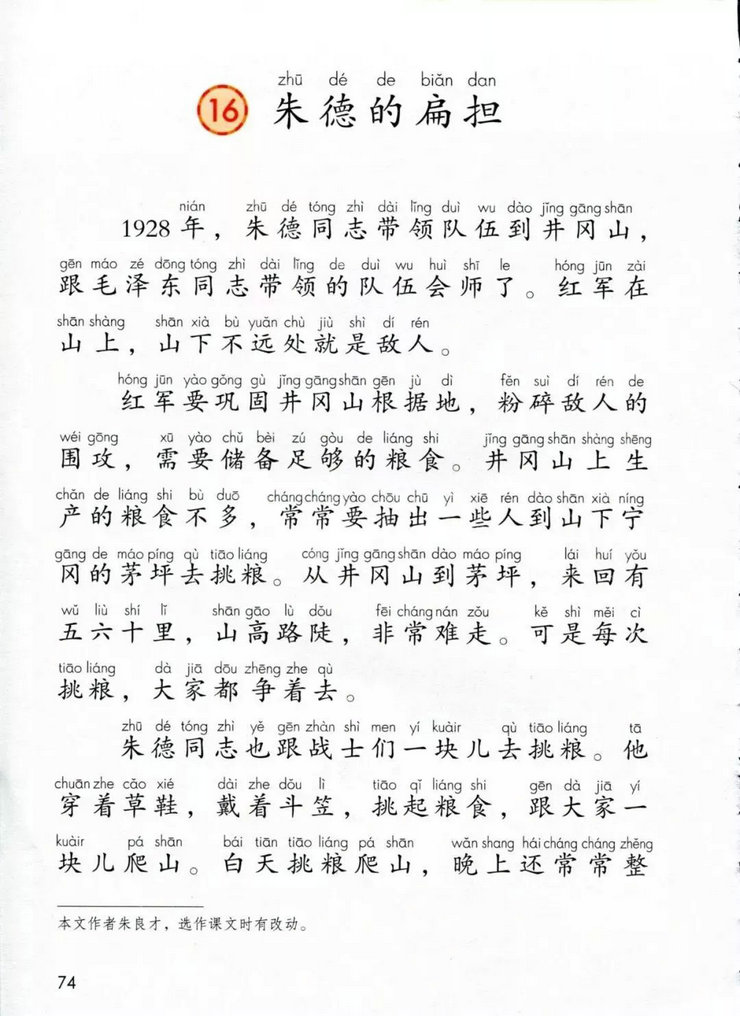 zhū dé de biǎn dan
16 朱德的扁担
nián zhū dé tóng zhì dài lǐng duì wu dào jǐng gāng shān
1928年，朱德同志带领队伍到井冈山，
gēn máo zé dōng tóng zhì dài lǐng de duì wu huì shī le hóng jūn zài
跟毛泽东同志带领的队伍会师了。红军在
shān shàng shān xià bù yuǎn chù jiù shì dí rén
山上，山下不远处就是敌人。
hóng jūn yào gǒng gù jǐng gāng shān gēn jù dì fěn suì dí rén de
红军要巩固井冈山根据地，粉碎敌人的
wéi gōng xū yào chǔ bèi zú gòu de liáng shi jǐng gāng shān shàng shēng
围攻，需要储备足够的粮食。井冈山上生
chǎn de liáng shi bù duō cháng cháng yào chōu chū yì xiē rén dào shān xià níng
产的粮食不多，常常要抽出一些人到山下宁
gāng de máo píng qù tiāo liáng cóng jǐng gāng shān dào máo píng lái huí yǒu
冈的茅坪去挑粮。从井冈山到茅坪，来回有
wǔ liù shí lǐ shān gāo lù dǒu fēi cháng nán zǒu kě shì měi cì
五六十里，山高路陡，非常难走。可是每次
tiāo liáng dà jiā dōu zhēng zhe qù
挑粮，大家都争着去。
zhū dé tóng zhì yě gēn zhàn shì men yí kuàir qù tiāo liáng tā
朱德同志也跟战士们一块儿去挑粮。他
chuān zhe cǎo xié dài zhe dǒu lì tiāo qǐ liáng shi gēn dà jiā yí
穿着草鞋，戴着斗笠，挑起粮食，跟大家一
kuàir pá shān bái tiān tiāo liáng pá shān wǎn shang hái cháng cháng zhěng
块儿爬山。白天挑粮爬山，晚上还常常整
本文作者朱良才，选作课文时有改动。
74